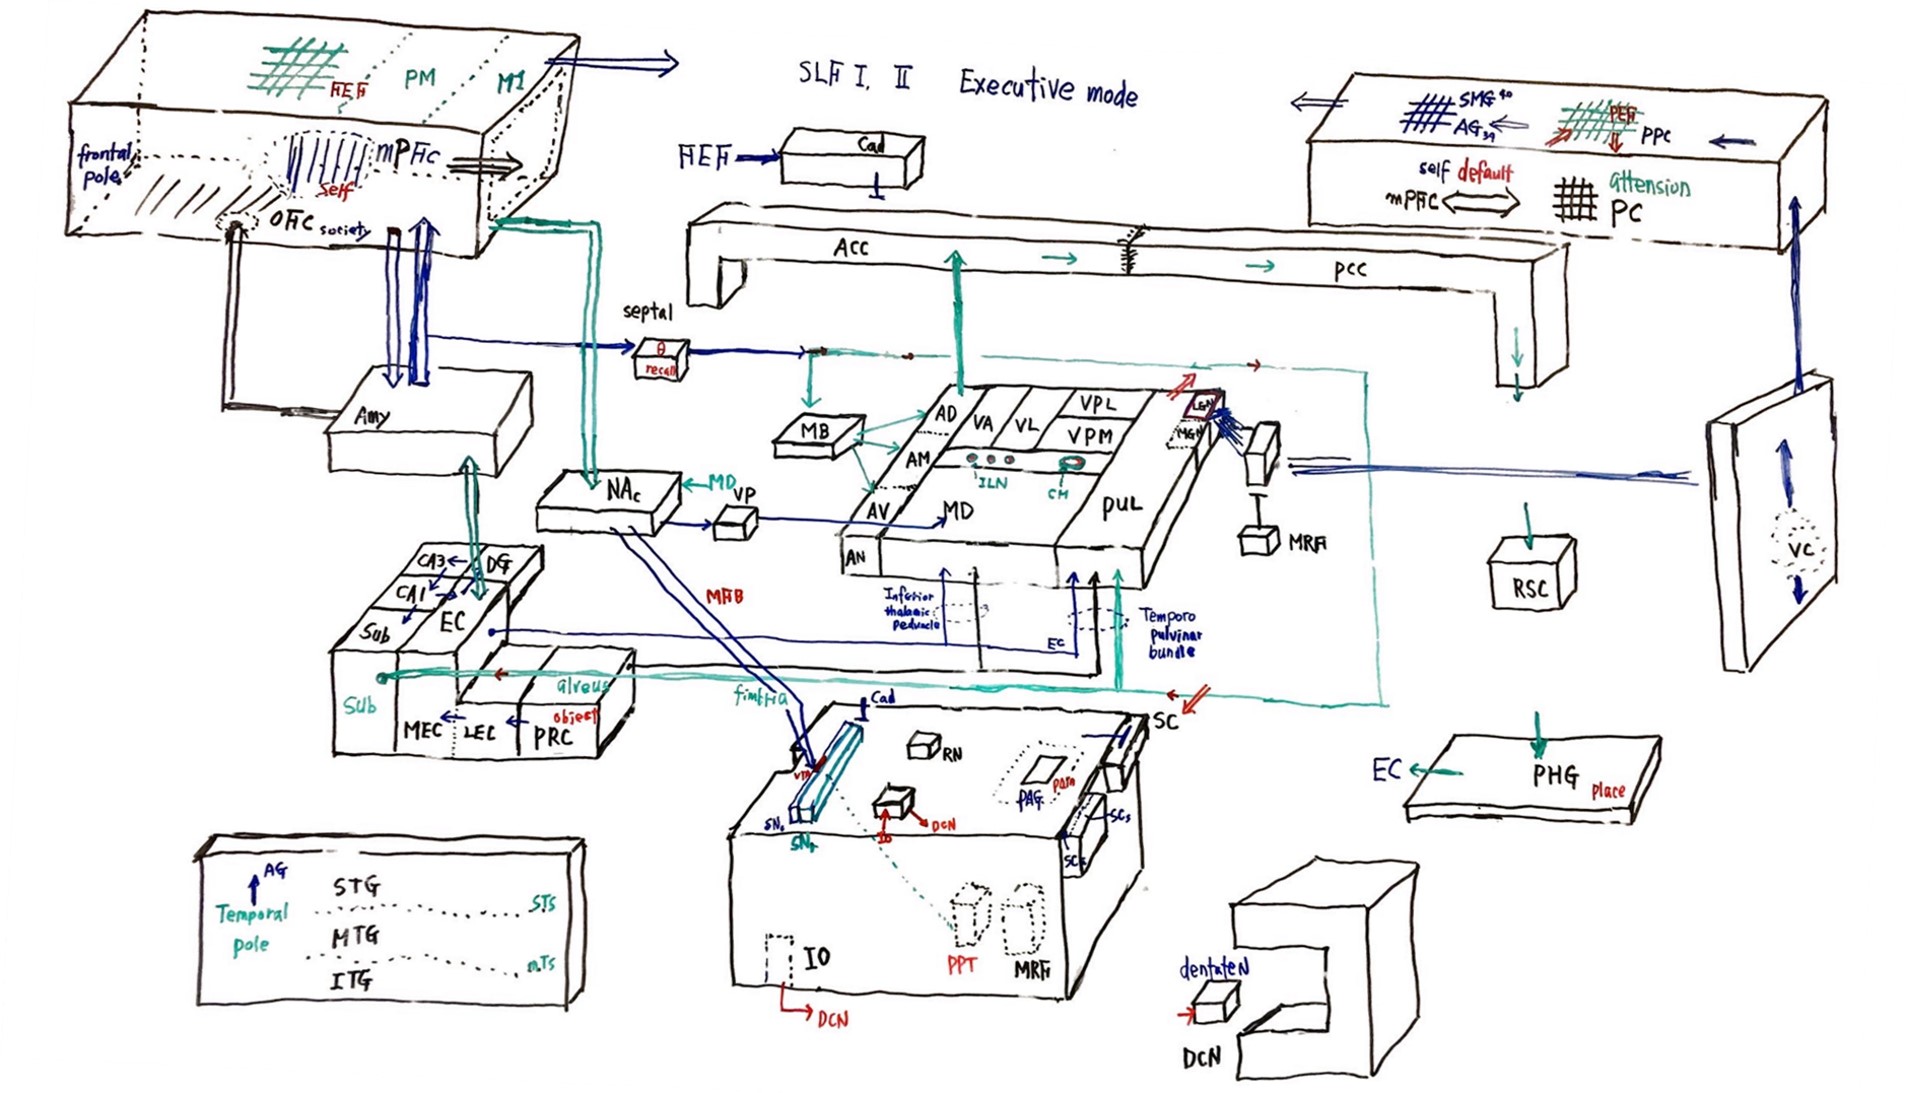 SLF I, II Executive mode
FEF
PM
M1
frontal
pole
mPFC
self
OFC society
FEF
Cad
SMG 40
AG 39
PEF
PPC
self default
attension
mPFC
PC
ACC
PCC
septal
θ
recall
Amy
MB
AD
VA
VL
VPL
VPM
LGN
MGN
AM
ILN
CM
AV
MD
PUL
AN
MRF
NAc
MD
VP
VC
RSC
CA3
DG
CA1
EC
Sub
MFB
Inferior
thalamic
peduncle
EC
Temporo
pulvinar
bundle
Sub
alveus
fimbria
MEC
LEC
object
PRC
Cad
SC
RN
VTA
PAG
pain
SNc
SNr
IO
DCN
SCs
EC
PHG
place
AG
Temporal
pole
STG
STS
MTG
mTs
ITG
IO
PPT
MRF
DCN
dentate N
DCN